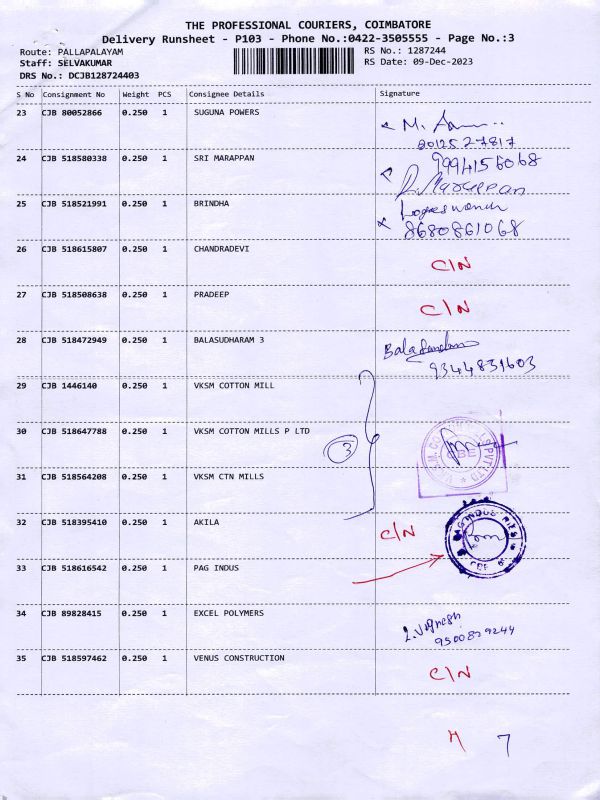 THE PROFESSIONAL COURIERS, COIMBATORE
Delivery Runsheet - P103 - Phone No.:0422-3505555 - Page No.:3
Route: PALLAPALAYAM RS No.: 1287244
Staff: SELVAKUMAR RS Date: 09-Dec-2023
DRS No.: DCJB128724403
S No Consignment No Weight PCS Consignee Details Signature
23 CJB 80052866 0.250 1 SUGUNA POWERS
24 CJB 518580338 0.250 1 SRI MARAPPAN 9994156068
R. Marappan
25 CJB 518521991 0.250 1 BRINDHA
8680861068
26 CJB 518615807 0.250 1 CHANDRADEVI
C/N
27 CJB 518508638 0.250 1 PRADEEP
C/N
28 CJB 518472949 0.250 1 BALASUDHARAM 3
9344831603
29 CJB 1446140 0.250 1 VKSM COTTON MILL
30 CJB 518647788 0.250 1 VKSM COTTON MILLS P LTD
3
31 CJB 518564208 0.250 1 VKSM CTN MILLS
32 CJB 518395410 0.250 1 AKILA
C/N
33 CJB 518616542 0.250 1 PAG INDUS
34 CJB 89828415 0.250 1 EXCEL POLYMERS
35 CJB 518597462 0.250 1 VENUS CONSTRUCTION
C/N
7